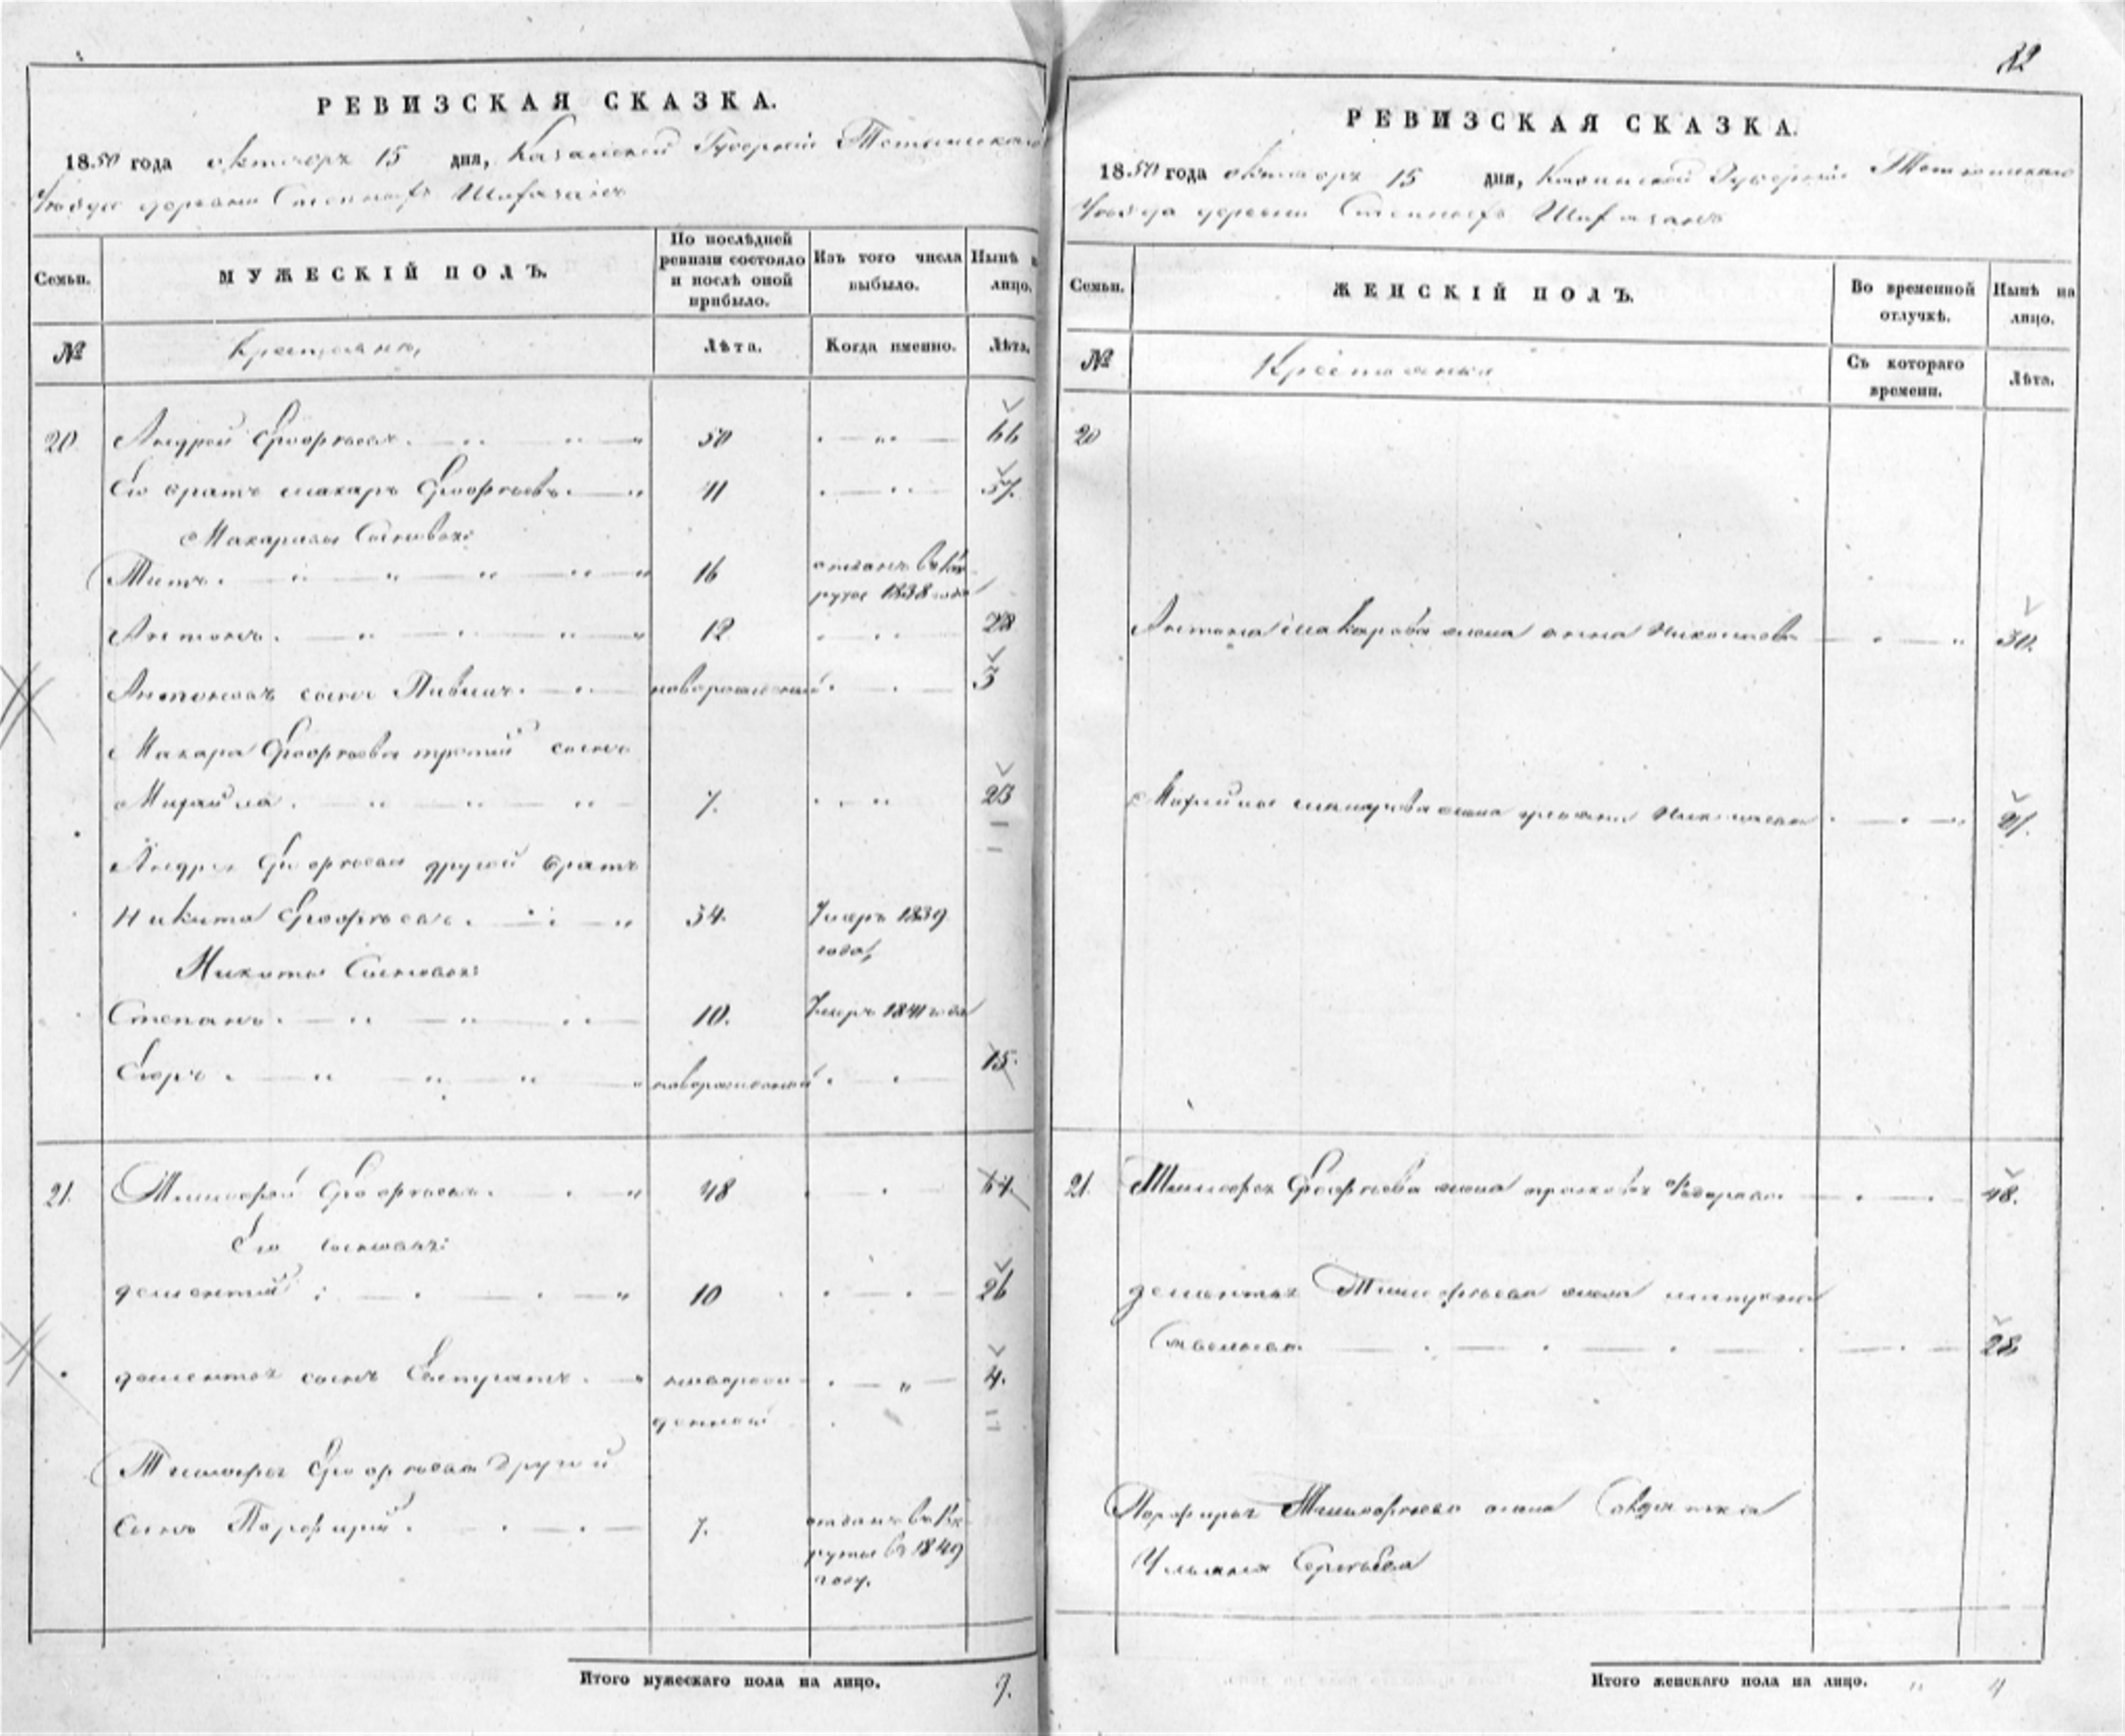 РЕВИЗСКАЯ СКАЗКА.
1850 года октября 15 дня, Казанской Губерніи Тетюшскаго
Уѣзда деревни
Семьи.
МУЖЕСКІЙ ПОЛЪ.
По послѣдней ревизіи состояло и послѣ оной прибыло.
Изъ того числа выбыло.
Нынѣ лицо.
№
Крестьяне,
Лѣта.
Когда именно.
Лѣта.
20 Андрей Григорьевъ 50 66
Его братъ Макаръ Григорьевъ 41 57.
Макаровы Сыновья:
Титъ 16 отданъ въ рекруты 1838 года
Антонъ 12 28
Антоновъ сынъ новорожденный 3
Макара Григорьева третій сынъ
Михайла 7. 23
Андрея Григорьева другой братъ
Никита Григорьевъ 34. Умеръ 1839 года,
Никиты Сыновья:
Степанъ 10. Умеръ 1841 года
Егоръ новорожденный 15.
21. Тимофей Григорьевъ 48 64.
Его сыновья:
дементий 10 26
дементья сынъ Евстратъ новорожденный 4.
Тимофея Григорьева другой
сынъ Порфирий 7. отданъ въ рекруты въ 1849 году.
Итого мужескаго пола на лицо. 9.
82
РЕВИЗСКАЯ СКАЗКА.
1850 года октября 15 дня, Казанской Губерніи Тетюшскаго
Уѣзда деревни
Семьи.
ЖЕНСКІЙ ПОЛЪ.
Во временной отлучкѣ.
Нынѣ на лицо.
№
Крестьянки
Съ котораго времени.
Лѣта.
20
Антона Макарова жена анна Николаева 30.
Михайлы Макарова жена Николаева 21.
21. Тимофея Григорьева жена прасковья Федорова 48.
дементья Тимофеева жена матрена
Савельева 28
Порфирья Тимофеева жена солдатка
Ульяна Сергѣева
Итого женскаго пола на лицо. 4